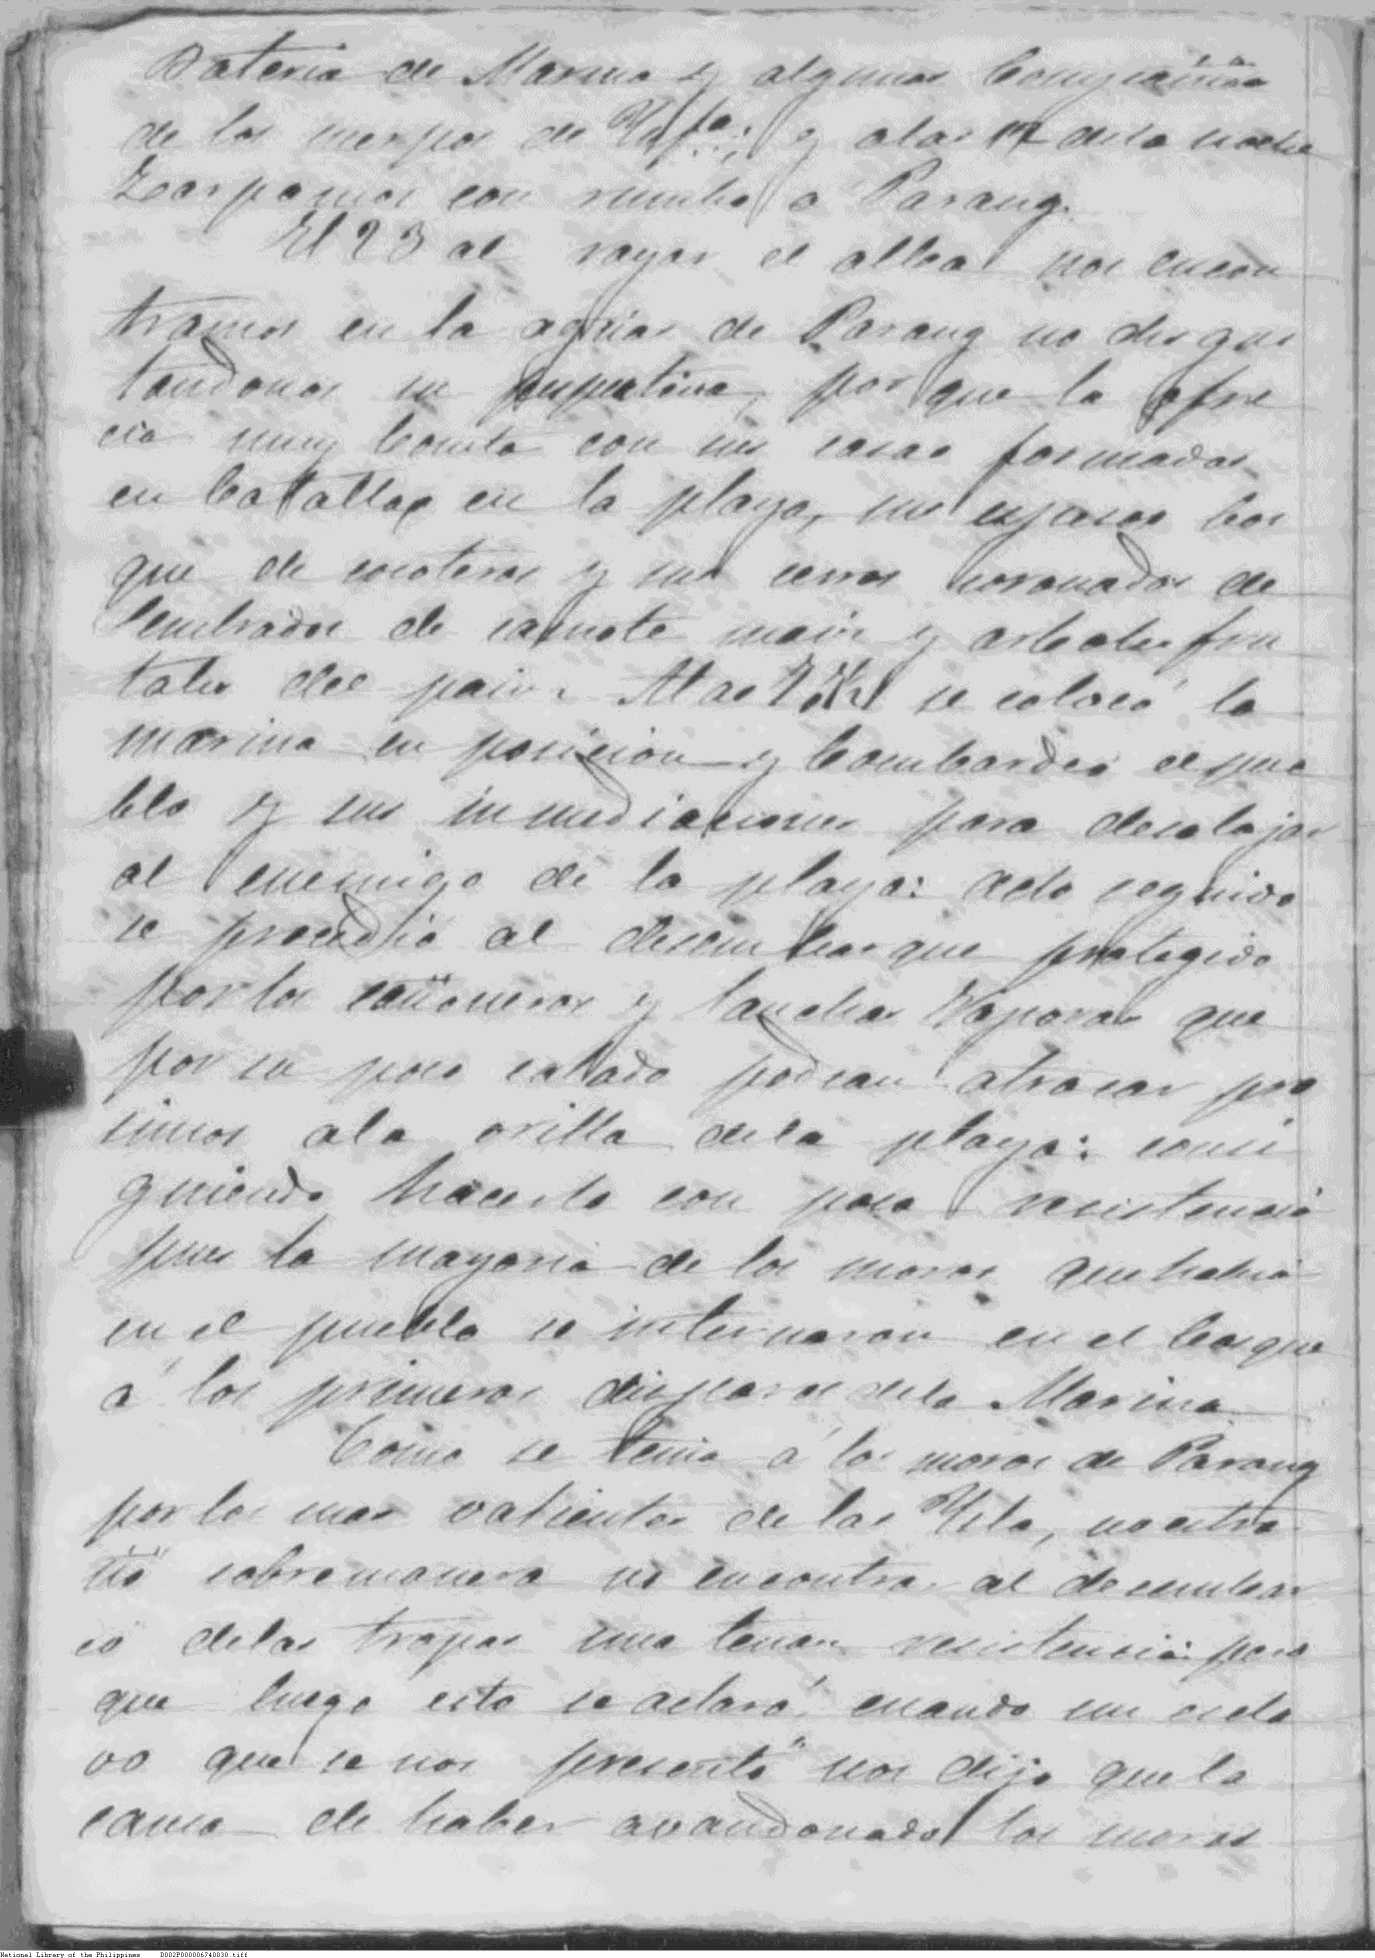 Bateria de Marina y algunas Compañias
de los cuerpos de Ynfa.; y alas 12 dela noche
Zarpamos con rumbo á Parang.
El 23 al rayar el alba nos encon
tramos en la aguas de Parang no disgus
tandonos su perpectiva, por que la ofre
cia muy bonita con sus casas formadas
en batalla en la playa, sus espesos bos
que de cocoteros y sus cerros coronados de
Sembrados de camote maiz y arboles fru
tales del pais. Alas se colocó la
marina en posicion y bombardeó el pue
blo y sus inmediaciones para desalojar
al enemigo de la playa: acto seguido
se procedió al desembarque protegido
por los cañoneros y lanchas Vaporas que
por su poco calado podian atracar pro
simos ala orilla dela playa: consi
guiendo hacerlo con poca resistencia
pues la mayoria de los moros que habia
en el pueblo se internaron en el bosque
á los primeros disparos dela Marina
Como se tenia á los moros de Parang
por los mas valientes de las Yslo, nos estra
ñó sobremanera no encontrar al desembar
co delas tropas una tenas resistencia: pero
que luego esto se aclaró cuando un escla
vo que se nos presentó nos dijo que la
causa de haber avandonado los moros
National Library of the Philippines D002P000006740030.tiff